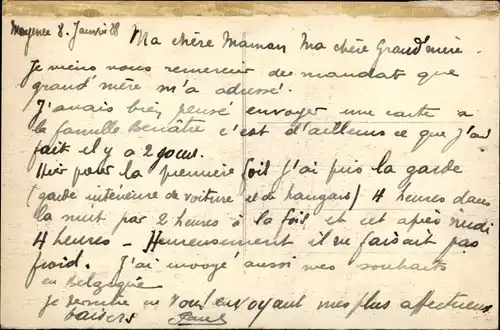 Mayence 8. Janvier 28
Ma chère Maman Ma chère Grand'mère.
Je viens vous remercier du mandat que
grand'mère m'a adressé.
J'avais bien pensé envoyer une carte à
la famille c'est d'ailleurs ce que j'ai
fait il y a 2 jours.
Hier pour la première fois j'ai pris la garde
(garde intérieure de voiture et de hangars) 4 heures dans
la nuit par 2 heures à la fois et cet après midi
4 heures - Heureusement il ne faisait pas
froid. J'ai envoyé aussi mes souhaits
en Belgique
Je termine en vous envoyant mes plus affectueux
baisers